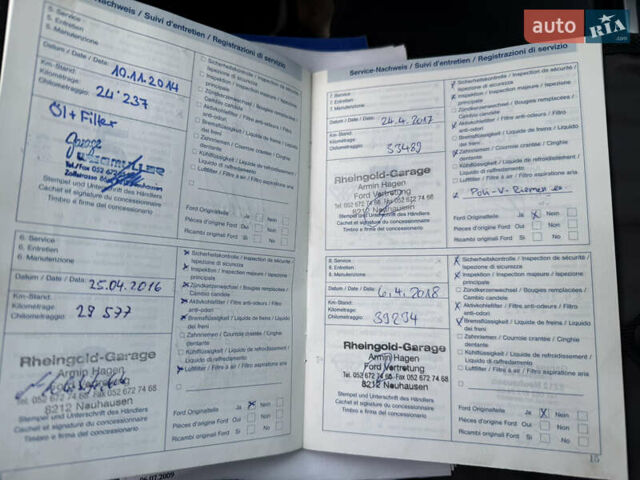 auto RIA.com
Service-Nachweis / Suivi d'entretien / Registrazioni di servizio
5. Service
5. Entretien
5. Manutenzione
Datum / Date / Data: 10.11.2014
Km-Stand:
Kilométrage:
Chilometraggio: 24'237
Öl + Filter
Garage
Tel./Fax 052 67
Stempel und Unterschrift des Händlers
Cachet et signature du concessionnaire
Timbro e firma del concessionario
Sicherheitskontrolle / Inspection de sécurité /
Ispezione di sicurezza
Inspektion / Inspection majeure / Ispezione
principale
Zündkerzenwechsel / Bougies remplacées /
Cambio candele
Aktivkohlefilter / Filtre anti-odeurs / Filtro
anti-odori
Bremsflüssigkeit / Liquide de freins / Liquido
dei freni
Zahnriemen / Courroie crantée / Cinghie
dentante
Kühlflüssigkeit / Liquide de refroidissement /
Liquido di raffredamento
Luftfilter / Filtre à air / Filtro aspirazione aria
Ford Originalteile Ja Nein
Pièces d'origine Ford Oui Non
Ricambi originali Ford Si No
6. Service
6. Entretien
6. Manutenzione
Datum / Date / Data: 25.04.2016
Km-Stand:
Kilométrage:
Chilometraggio: 29 577
Rheingold-Garage
Armin Hagen
Tel. 052 672 74 66 Fax 052 672 74 68
8212 Neuhausen
Stempel und Unterschrift des Händlers
Cachet et signature du concessionnaire
Timbro e firma del concessionario
x Sicherheitskontrolle / Inspection de sécurité /
Ispezione di sicurezza
x Inspektion / Inspection majeure / Ispezione
principale
x Zündkerzenwechsel / Bougies remplacées /
Cambio candele
x Aktivkohlefilter / Filtre anti-odeurs / Filtro
anti-odori
x Bremsflüssigkeit / Liquide de freins / Liquido
dei freni
Zahnriemen / Courroie crantée / Cinghie
dentante
Kühlflüssigkeit / Liquide de refroidissement /
Liquido di raffredamento
x Luftfilter / Filtre à air / Filtro aspirazione aria
Ford Originalteile Ja x Nein
Pièces d'origine Ford Oui Non
Ricambi originali Ford Si No
06.07.2009
Service-Nachweis / Suivi d'entretien / Registrazioni di servizio
7. Service
7. Entretien
7. Manutenzione
Datum / Date / Data: 24.4.2017
Km-Stand:
Kilométrage:
Chilometraggio: 33489
Rheingold-Garage
Armin Hagen
Ford Vertretung
Tel. 052 672 74 66 Fax 052 672 74 68
8212 Neuhausen
Stempel und Unterschrift des Händlers
Cachet et signature du concessionnaire
Timbro e firma del concessionario
x Sicherheitskontrolle / Inspection de sécurité /
Ispezione di sicurezza
x Inspektion / Inspection majeure / Ispezione
principale
Zündkerzenwechsel / Bougies remplacées /
Cambio candele
Aktivkohlefilter / Filtre anti-odeurs / Filtro
anti-odori
Bremsflüssigkeit / Liquide de freins / Liquido
dei freni
Zahnriemen / Courroie crantée / Cinghie
dentante
Kühlflüssigkeit / Liquide de refroidissement /
Liquido di raffredamento
Luftfilter / Filtre à air / Filtro aspirazione aria
x Poli-V-Riemen
Ford Originalteile Ja x Nein
Pièces d'origine Ford Oui Non
Ricambi originali Ford Si No
8. Service
8. Entretien
8. Manutenzione
Datum / Date / Data: 6.4.2018
Km-Stand:
Kilométrage:
Chilometraggio: 39294
Rheingold-Garage
Armin Hagen
Ford Vertretung
Tel. 052 672 74 66 Fax 052 672 74 68
8212 Neuhausen
Stempel und Unterschrift des Händlers
Cachet et signature du concessionnaire
Timbro e firma del concessionario
x Sicherheitskontrolle / Inspection de sécurité /
Ispezione di sicurezza
x Inspektion / Inspection majeure / Ispezione
principale
Zündkerzenwechsel / Bougies remplacées /
Cambio candele
x Aktivkohlefilter / Filtre anti-odeurs / Filtro
anti-odori
Bremsflüssigkeit / Liquide de freins / Liquido
dei freni
Zahnriemen / Courroie crantée / Cinghie
dentante
Kühlflüssigkeit / Liquide de refroidissement /
Liquido di raffredamento
Luftfilter / Filtre à air / Filtro aspirazione aria
Ford Originalteile Ja x Nein
Pièces d'origine Ford Oui Non
Ricambi originali Ford Si No
15